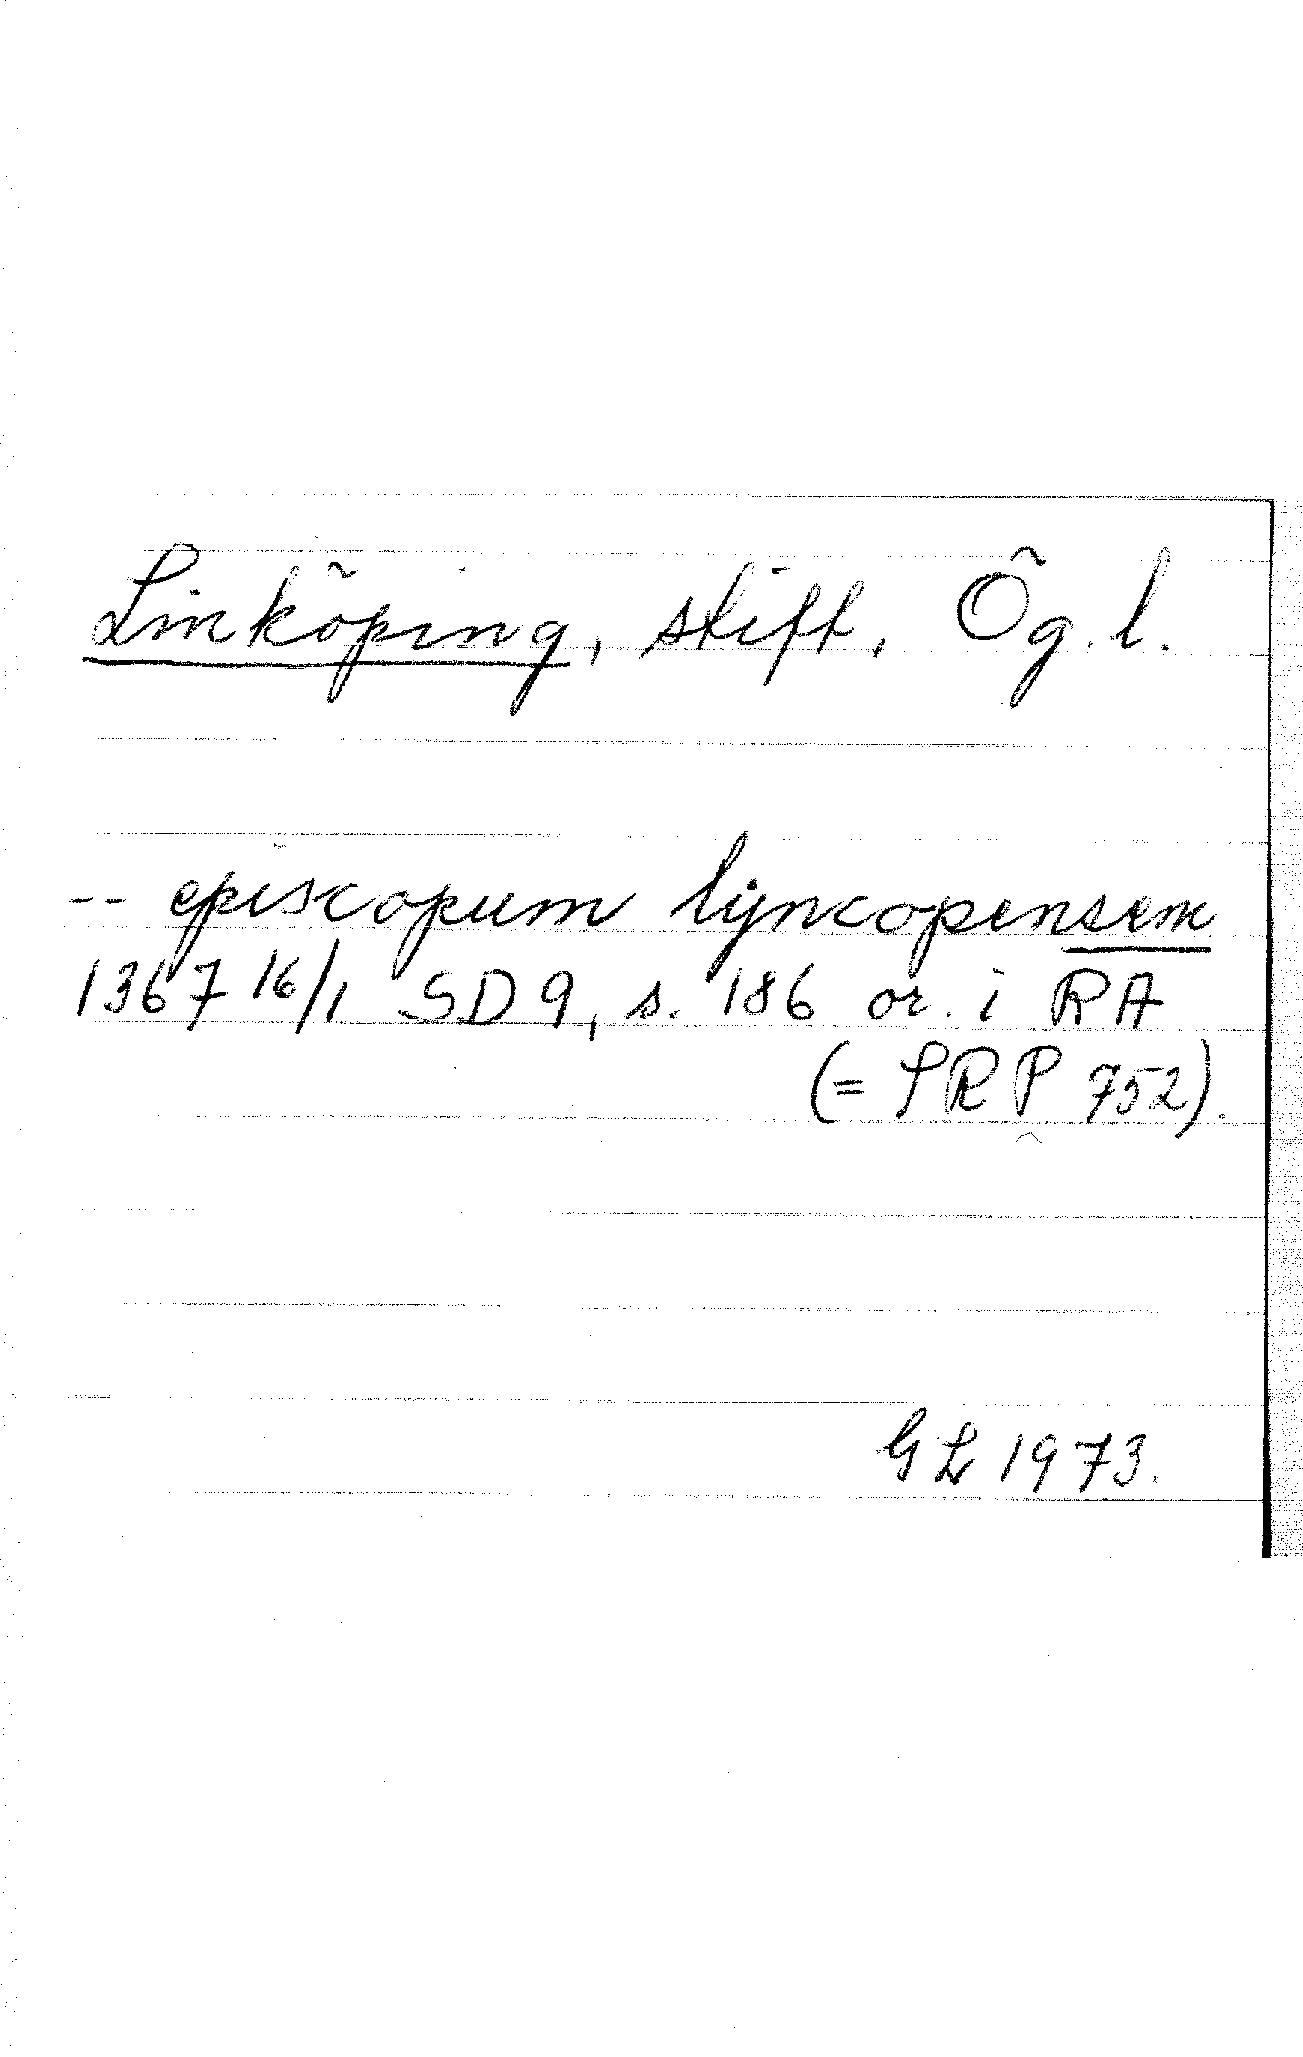 Linköping, stift, Ög. l.
-- episcopum lijncopensem
1367 16/1 SD 9, s. 186 or. i RA
(= SRP 752).
GL 1973.